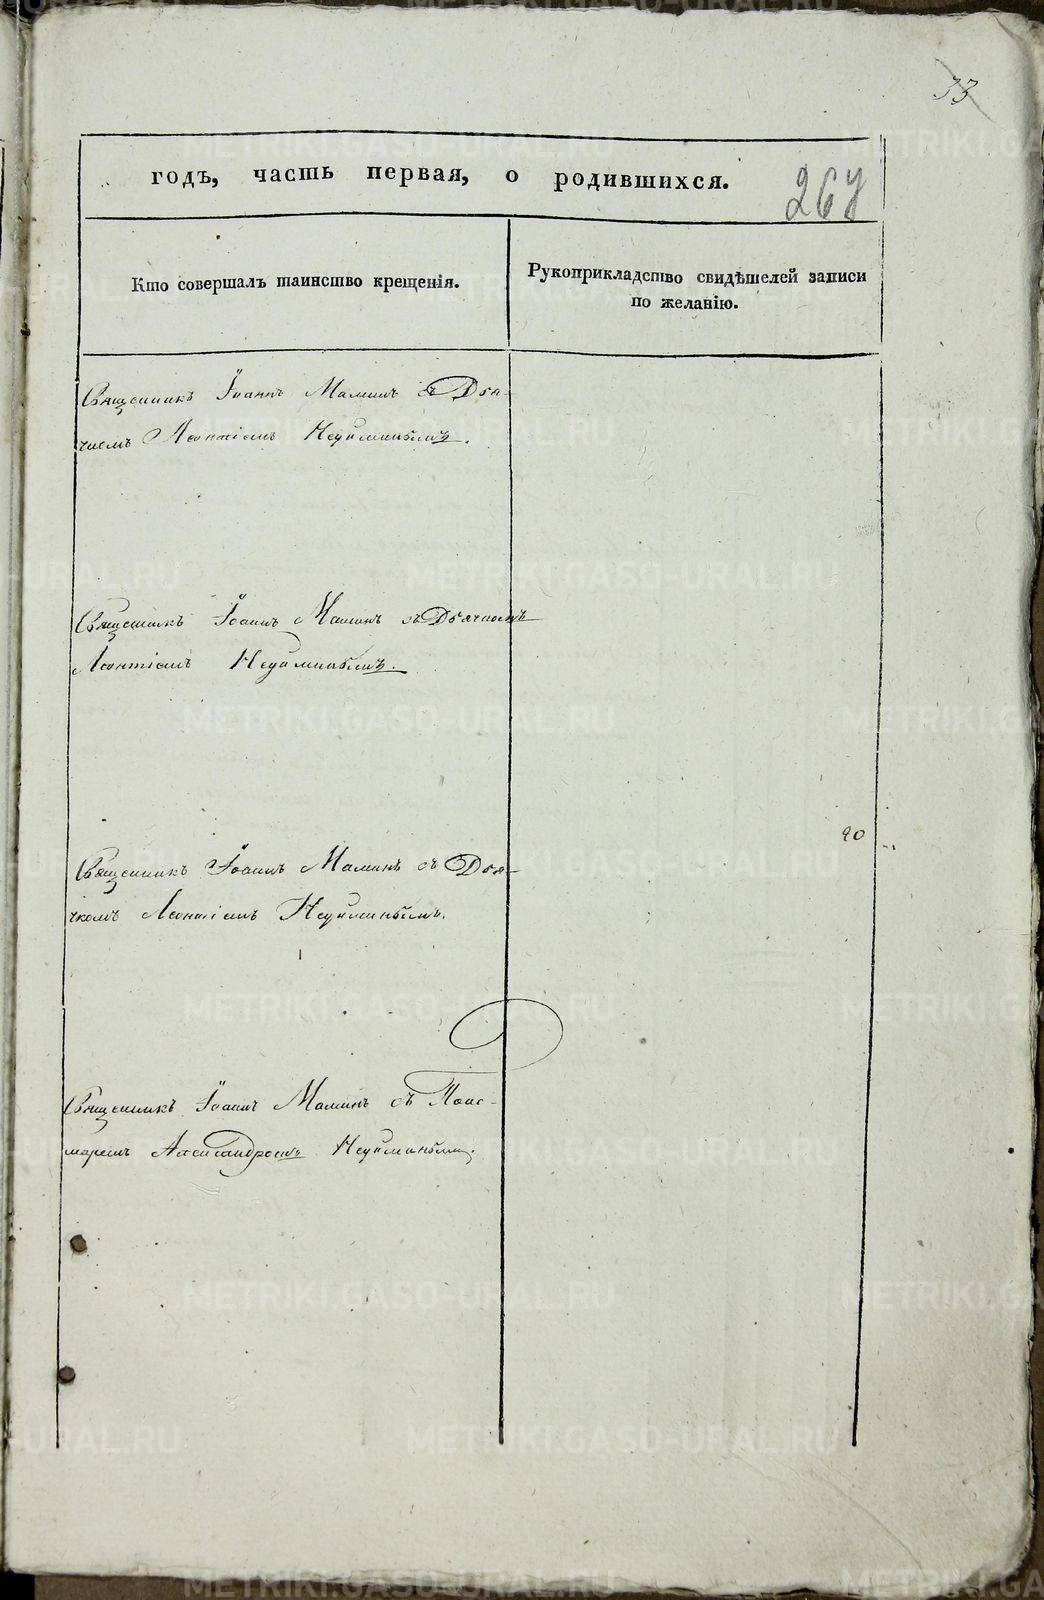 33
годъ, часть первая, о родившихся.
267
Кто совершалъ таинство крещенія.
Рукоприкладство свидѣтелей записи
по желанію.
Священникъ Іоаннъ Маминъ съ Дья-
чкомъ Леонтіемъ Неуйминымъ.
Священникъ Іоаннъ Маминъ съ Дьячкомъ
Леонтіемъ Неуйминымъ.
20
Священникъ Іоаннъ Маминъ съ Дья-
чкомъ Леонтіемъ Неуйминымъ.
Священникъ Іоаннъ Маминъ съ Поно-
маремъ Александромъ Неуйминымъ.
METRIKI.GASO-URAL.RU